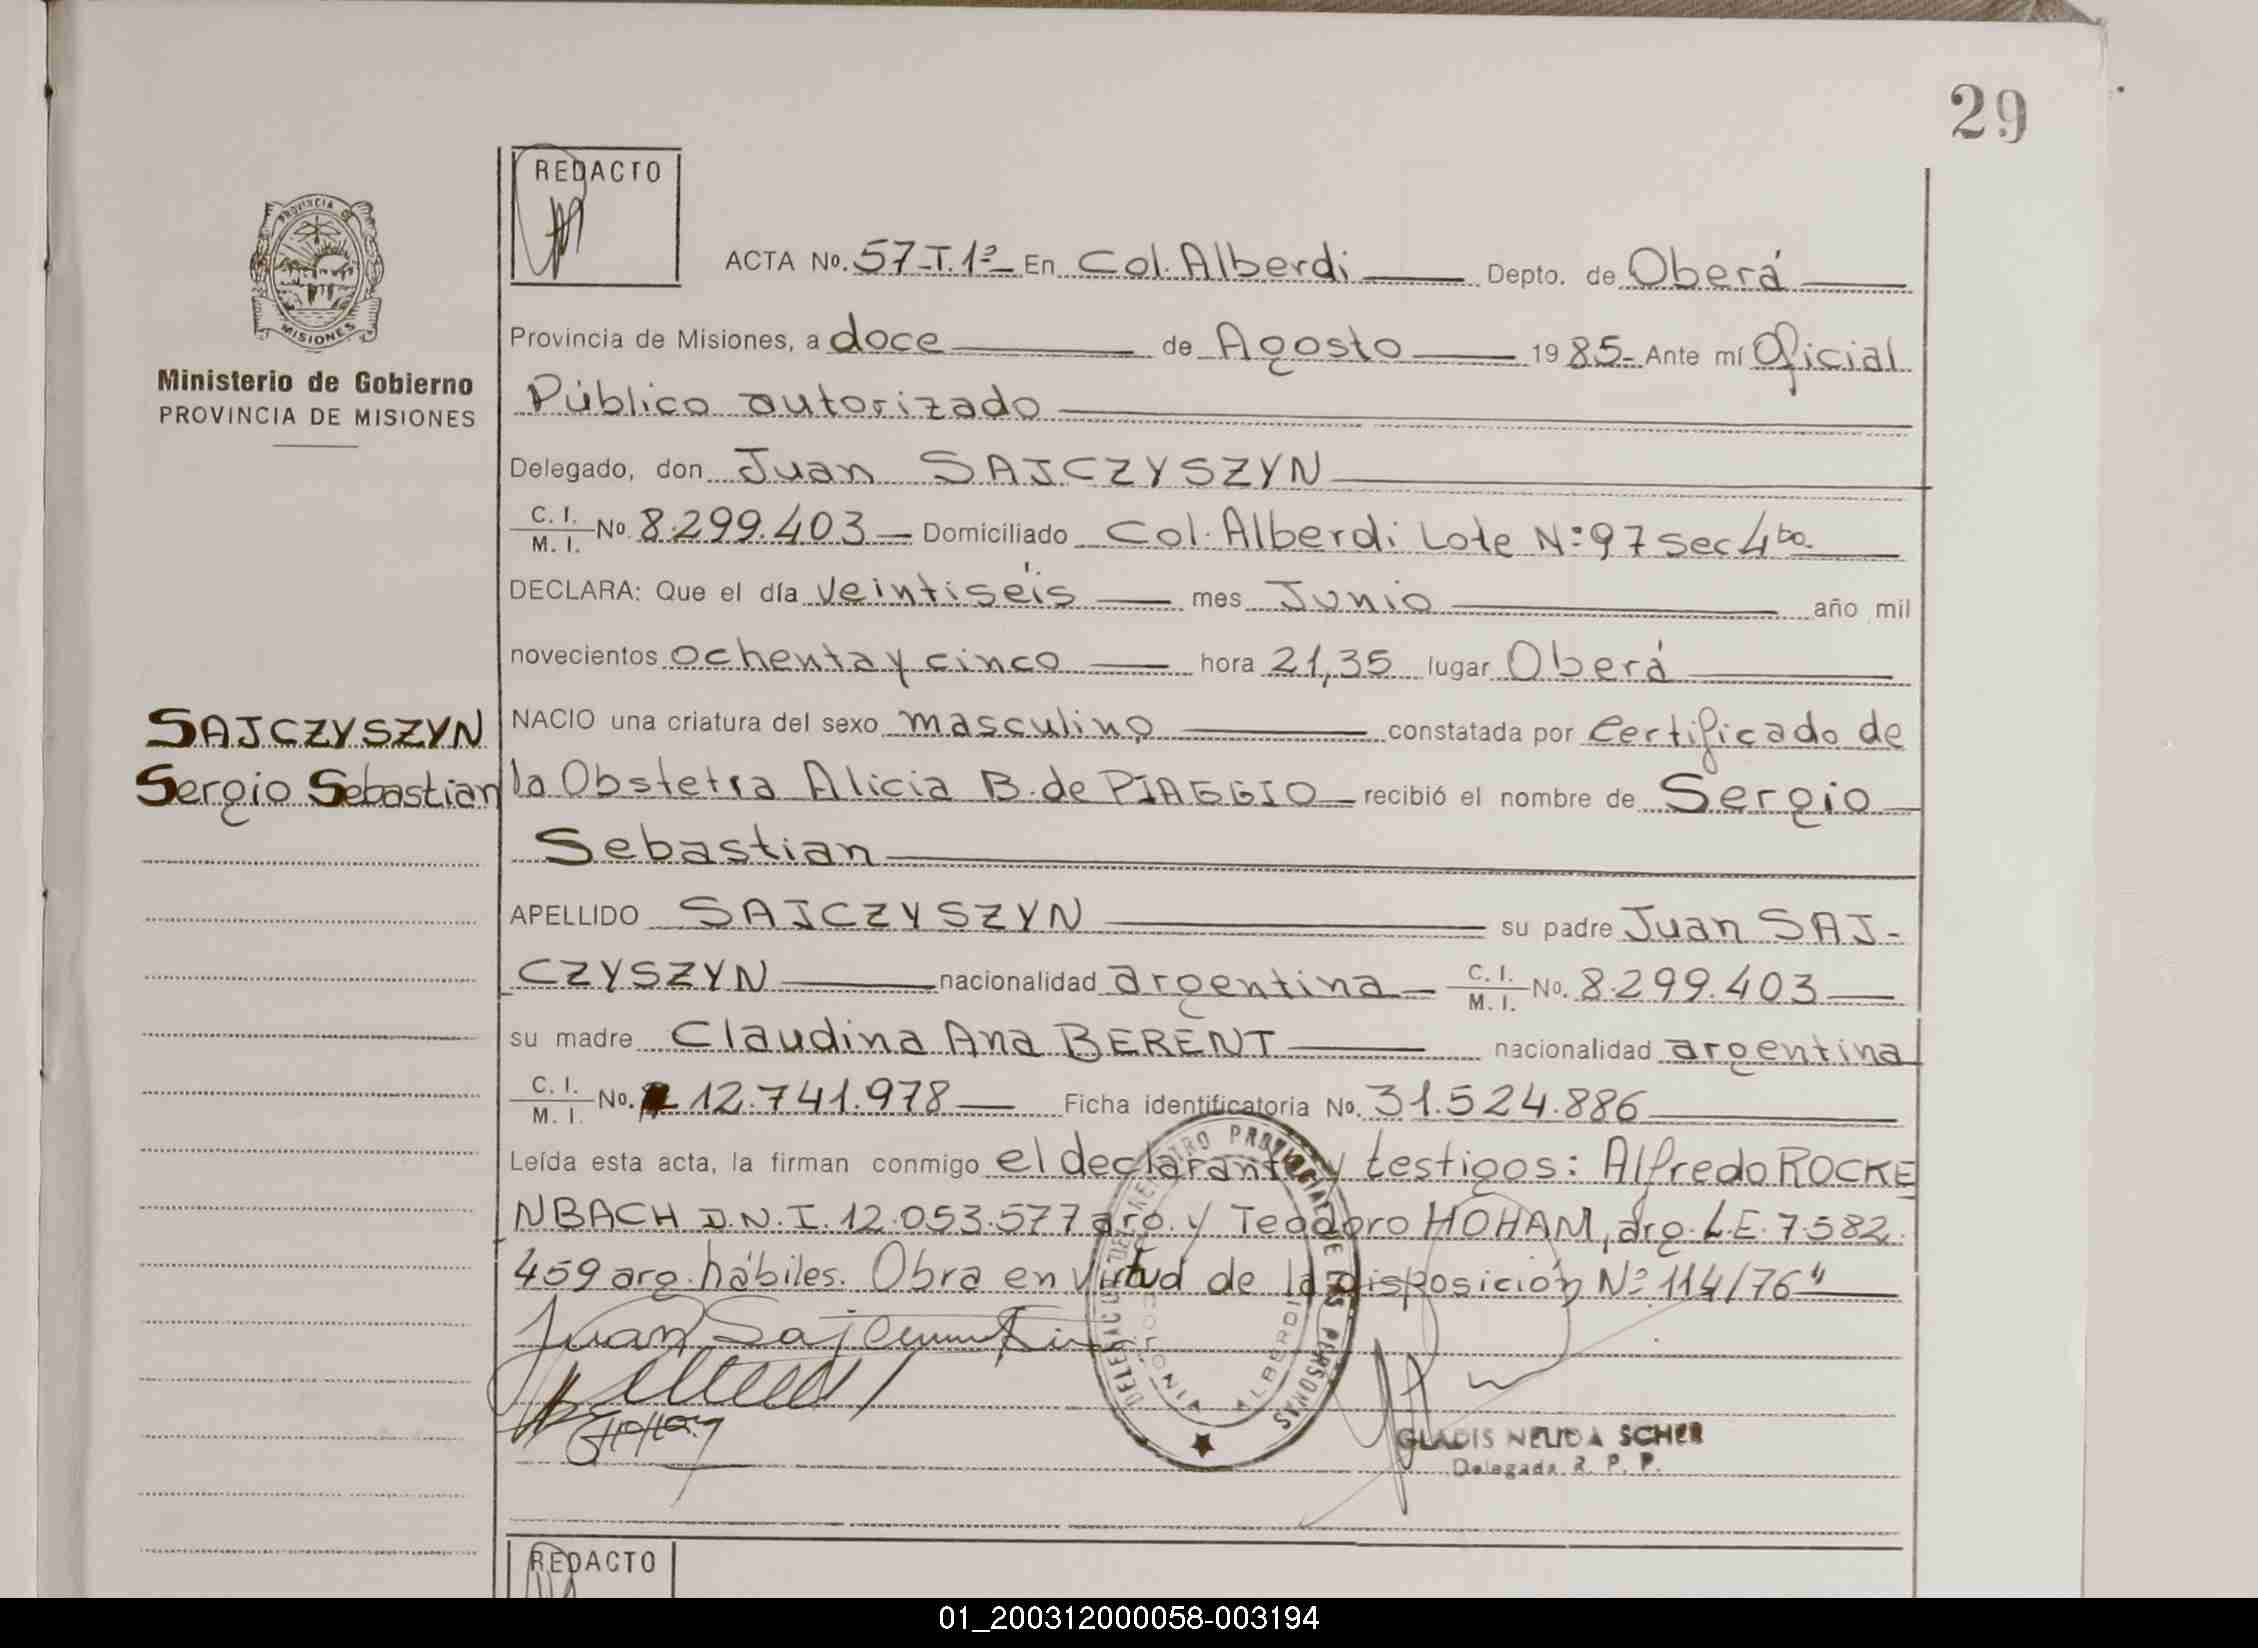 29
REDACTO
PROVINCIA DE
MISIONES
Ministerio de Gobierno
PROVINCIA DE MISIONES
ACTA No. 57-T.1º En Col. Alberdi Depto. de Oberá
Provincia de Misiones, a doce de Agosto 1985- Ante mí Oficial
Público autorizado
Delegado, don Juan SAJCZYSZYN
C. I. / M. I. No. 8.299.403 Domiciliado Col. Alberdi Lote Nº 97 sec 4ta.
DECLARA: Que el día veintiséis mes Junio año mil
novecientos ochenta y cinco hora 21,35 lugar Oberá
SAJCZYSZYN
Sergio Sebastian
NACIO una criatura del sexo masculino constatada por certificado de
la Obstetra Alicia B. de PIAGGIO recibió el nombre de Sergio
Sebastian
APELLIDO SAJCZYSZYN su padre Juan SAJ-
CZYSZYN nacionalidad argentina C. I. / M. I. No. 8.299.403
su madre Claudina Ana BERENT nacionalidad argentina
C. I. / M. I. No. 12.741.978 Ficha identificatoria No. 31.524.886
Leída esta acta, la firman conmigo el declarante y testigos: Alfredo ROCKE
NBACH D.N.I. 12.053.577 arg. y Teodoro HOHAM, arg. L.E. 7.582.
459 arg. hábiles. Obra en virtud de la disposición Nº 114/76"
Juan
DELEGACION DEL REGISTRO PROVINCIAL DE LAS PERSONAS
COLONIA ALBERDI
GLADIS NELIDA SCHER
Delegada R. P. P.
REDACTO
01_200312000058-003194